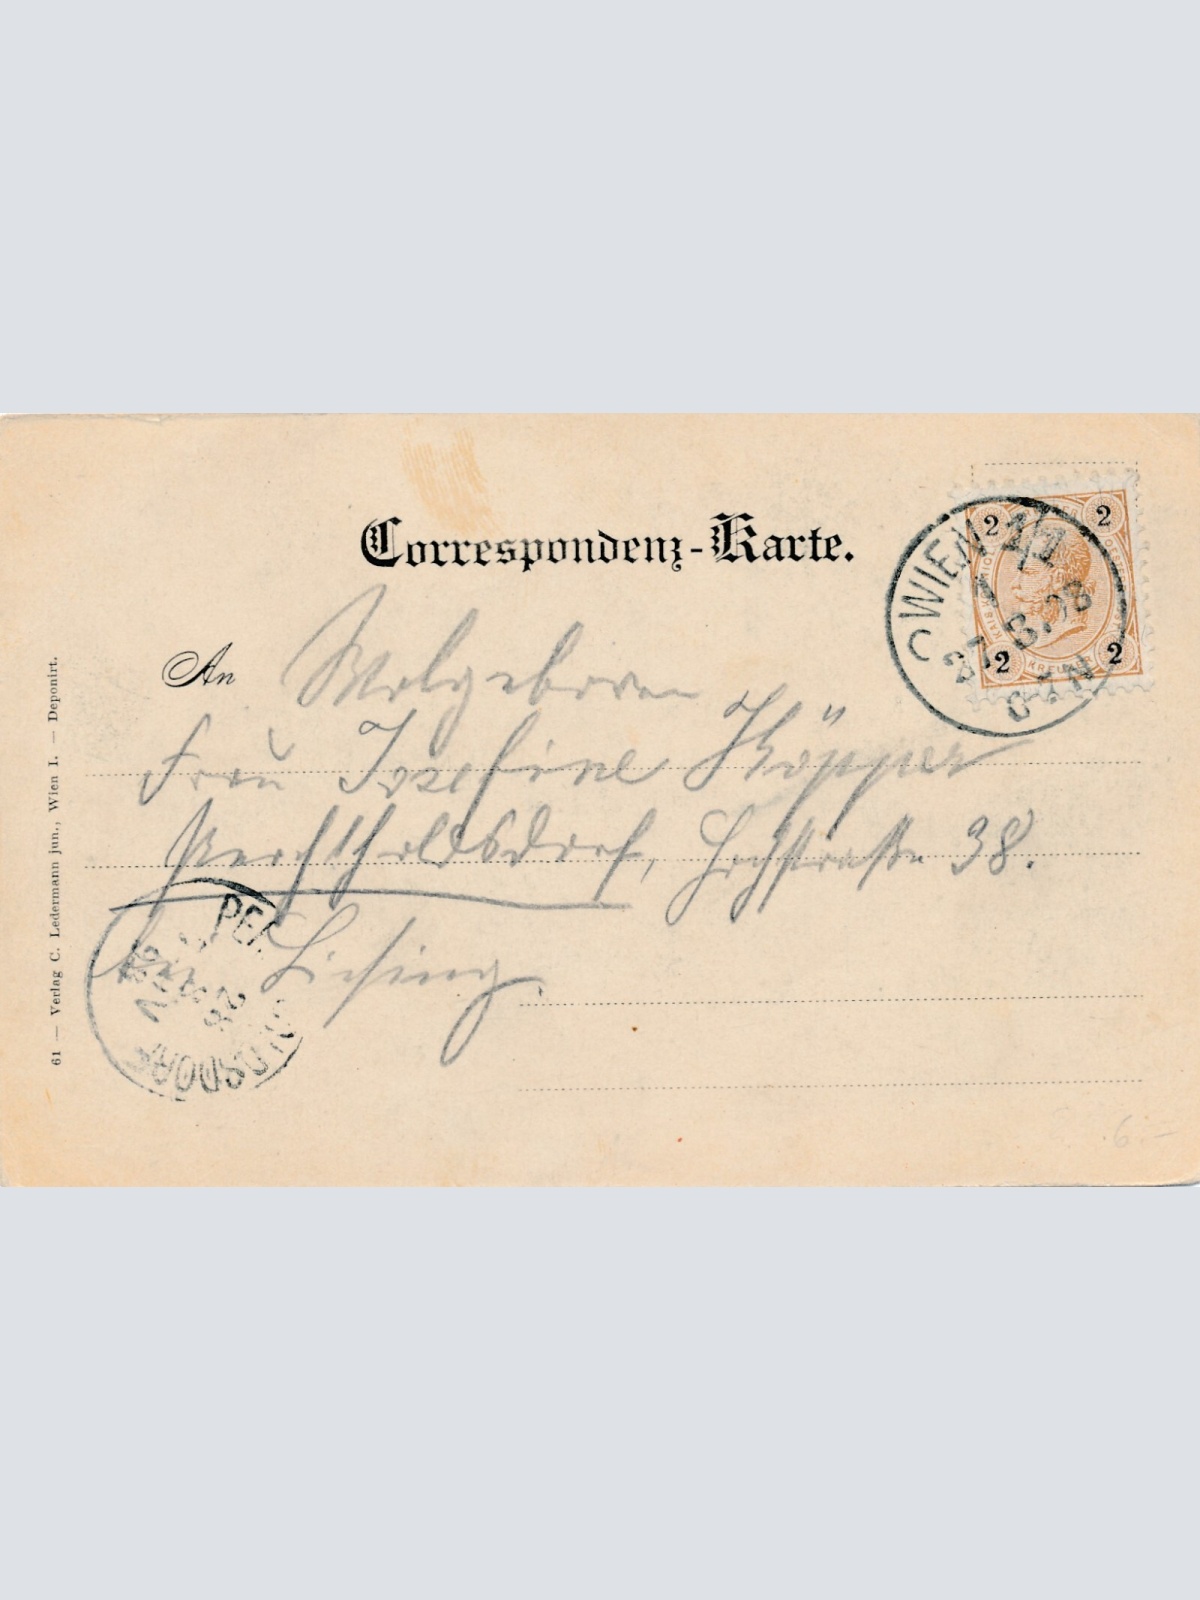 Correspondenz-Karte.
An Wolgeboren
Frau Josefine Köpper
Perchtholdsdorf, Hochstraße 38.
bei Liesing.
WIEN 1/1
27.8.98
2 2 2 2
61 — Verlag C. Ledermann jun., Wien I. — Deponirt.
6.-